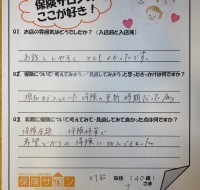 保険サロンの
ここが好き!
Q1. お店の雰囲気はどうでしたか?(入店前と入店後)
お話ししやすく とてもよかったです。
Q2. 保険について「考えてみよう」「見直してみよう」と思ったきっかけは何ですか?
現在加入していた保険の更新時期だった為
Q3. 実際に保険について考えてみて・見直してみて良かった点は何ですか?
保険金額、保険料等が
希望していた 保険に加入できました。
保険サロン
在住 40歳!
さま